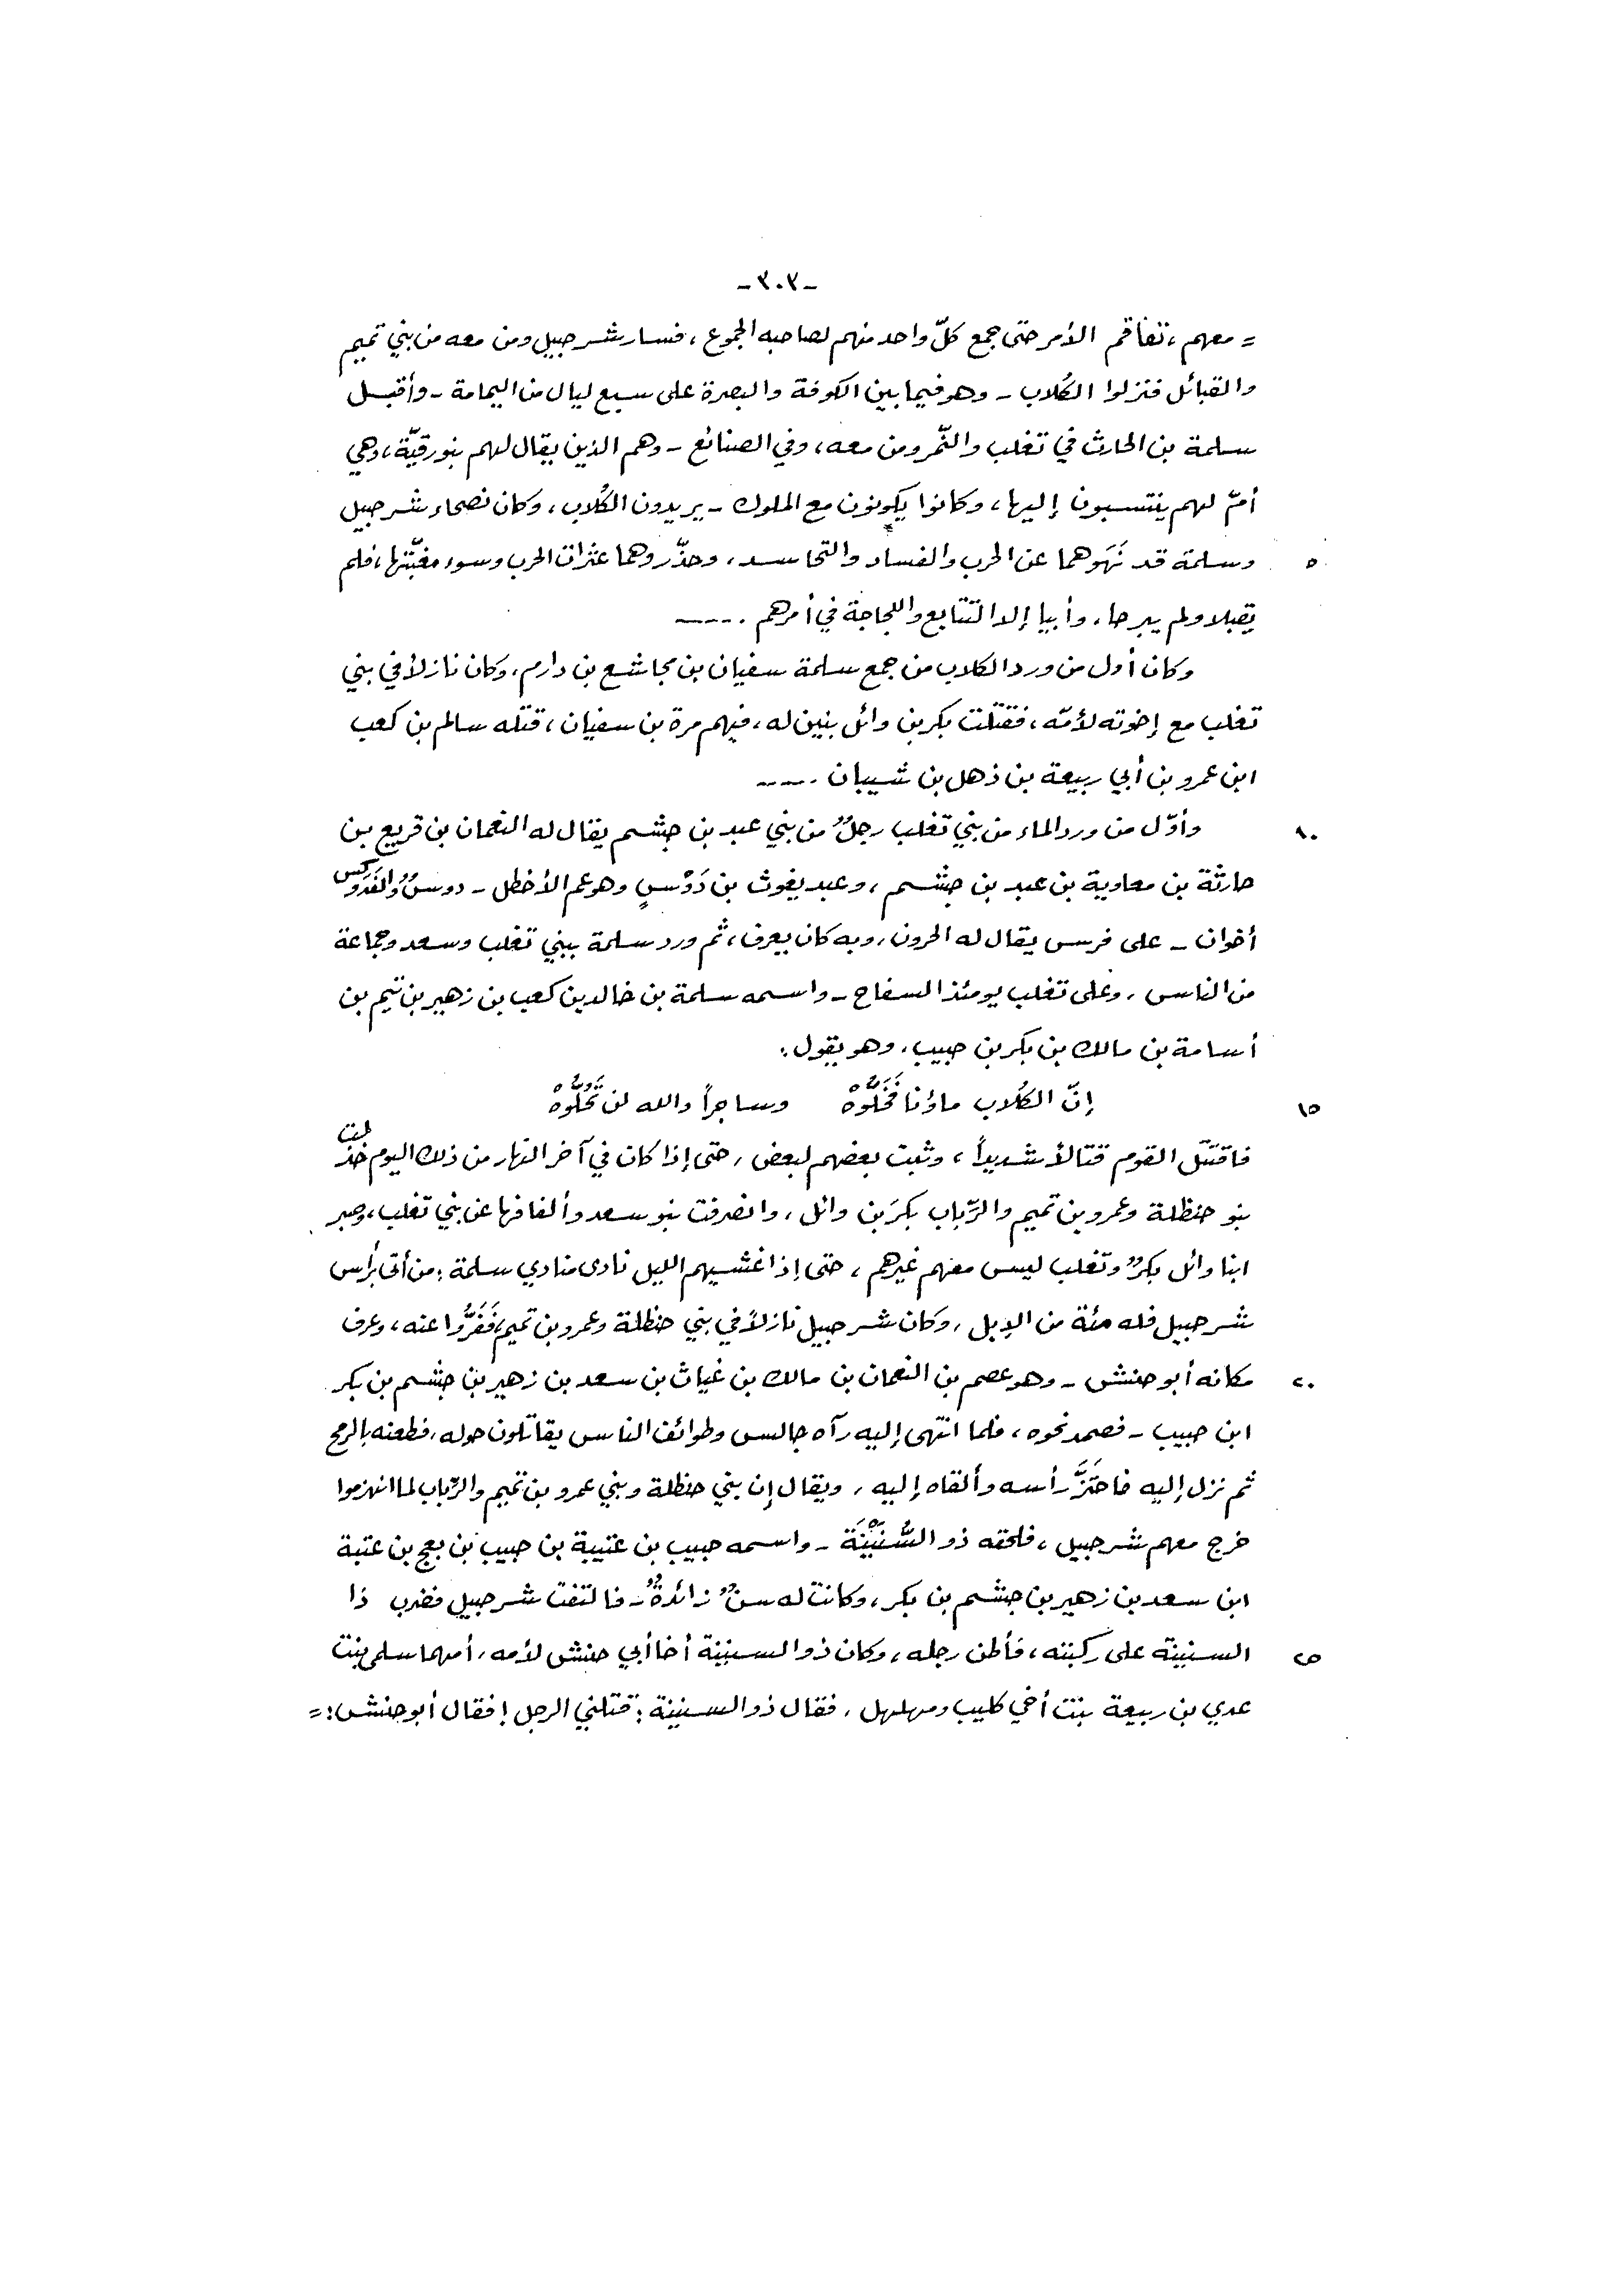 -٣٠٣-
= معهم، تفاقم الأمر حتى جمع كلّ واحد منهم لصاحبه الجموع، فسار شرحبيل ومن معه من بني تميم
والقبائل فنزلوا الكُلاب - وهو فيما بين الكوفة والبصرة على سبع ليال من اليمامة - وأقبل
سلمة بن الحارث في تغلب والنّمر ومن معه، وفي الصنائع - وهم الذين يقال لهم بنو رقيّة، وهي
أمّ لهم ينتسبون إليها، وكانوا يكونون مع الملوك - يريدون الكُلاب، وكان نصحاء شرحبيل
٥ وسلمة قد نَهَوهما عن الحرب والفساد والتحاسد، وحذّروهما عثرات الحرب وسوء مغبّتها، فلم
يقبلا ولم يبرحا، وأبيا إلا التتابع واللجاجة في أمرهم .-----
وكان أول من ورد الكلاب من جمع سلمة سفيان بن مجاشع بن دارم، وكان نازلاً في بني
تغلب مع إخوته لأمّه، فقتلت بكر بن وائل بنين له، فيهم مرة بن سفيان، قتله سالم بن كعب
ابن عمرو بن أبي ربيعة بن ذهل بن شيبان .-----
١٠ وأوّل من ورد الماء من بني تغلب رجلٌ من بني عبد بن جشم يقال له النعمان بن قريع بن
حارثة بن معاوية بن عبد بن جشم، وعبد يغوث بن دَوْسٍ وهو عم الأخطل - دوسٌ والفَدَوكس
أخوان - على فرس يقال له الحرون، وبه كان يعرف، ثم ورد سلمة ببني تغلب وسعد وجماعة
من الناس، وعلى تغلب يومئذ السفاح - واسمه سلمة بن خالد بن كعب بن زهير بن تيم بن
أسامة بن مالك بن بكر بن حبيب، وهو يقول:
١٥ إنّ الكُلاب ماؤنا فَخَلُّوهْ وساجراً والله لن تَحُلُّوهْ
فاقتتل القوم قتالاً شديداً، وثبت بعضهم لبعض، حتى إذا كان في آخر النهار من ذلك اليوم خذلت
بنو حنظلة وعمرو بن تميم والرّباب بكرَ بن وائل، وانصرفت بنو سعد وألفافها عن بني تغلب، وصبر
ابنا وائل بكرٌ وتغلب ليس معهم غيرهم، حتى إذا غشيهم الليل نادى منادي سلمة: من أتى برأس
شرحبيل فله مئة من الإبل، وكان شرحبيل نازلاً في بني حنظلة وعمرو بن تميم، فَفَرُّوا عنه، وعرف
٢٠ مكانه أبو حنش - وهو عصم بن النعمان بن مالك بن غياث بن سعد بن زهير بن جشم بن بكر
ابن حبيب - فصمد نحوه، فلما انتهى إليه رآه جالس وطوائف الناس يقاتلون حوله، فطعنه بالرمح
ثم نزل إليه فاحتَزَّ رأسه وألقاه إليه، ويقال إن بني حنظلة وبني عمرو بن تميم والرّباب لما انهزموا
خرج معهم شرحبيل، فلحقه ذو السُّنَيْنَة - واسمه حبيب بن عتيبة بن حبيب بن بعج بن عتبة
ابن سعد بن زهير بن جشم بن بكر، وكانت له سنٌ زائدةٌ - فالتفت شرحبيل فضرب ذا
٢٥ السنينة على ركبته، فأطن رجله، وكان ذو السنينة أخا أبي حنش لأمه، أمهما سلمى بنت
عدي بن ربيعة بنت أخي كليب ومهلهل، فقال ذو السنينة: قتلني الرجل! فقال أبو حنش: =